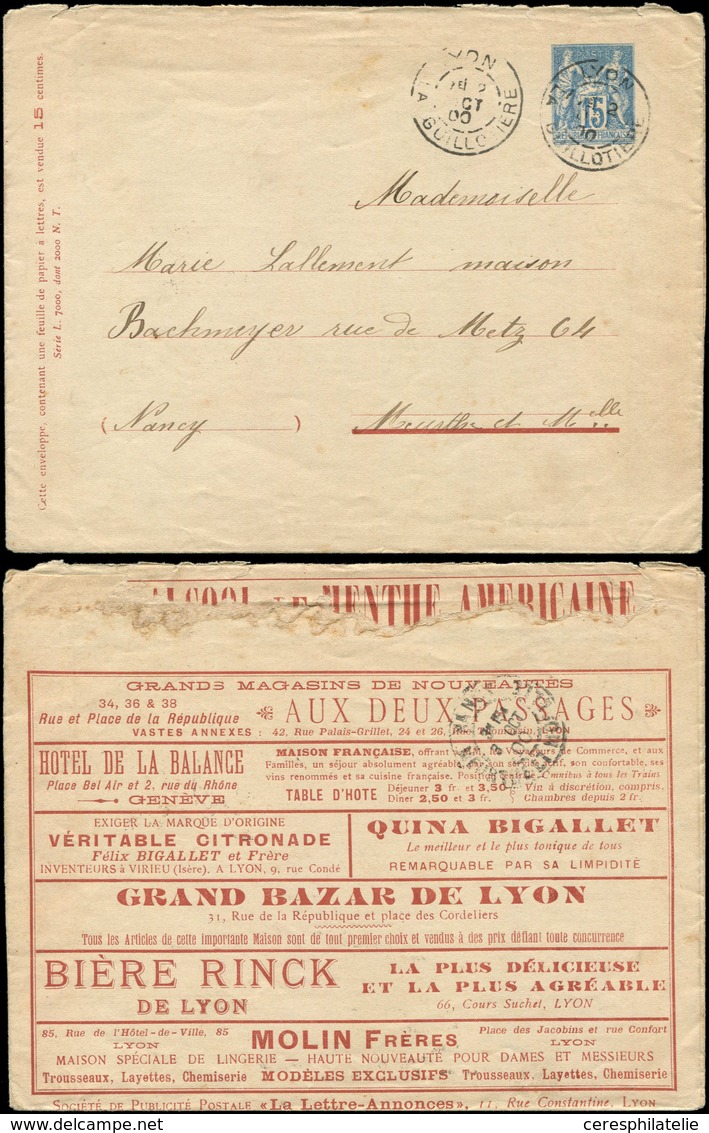 Cette enveloppe, contenant une feuille de papier à lettres, est vendue 15 centimes.
Série L. 7000, dont 2000 N. T.
LYON
OCT
00
LA GUILLOTIÈRE
POSTES
15
RÉPUBLIQUE FRANÇAISE
LYON
LA GUILLOTIÈRE
Mademoiselle
Marie Lallement maison
Bachmeyer rue de Metz 64
(Nancy) Meurthe et Mlle
ALCOOL DE MENTHE AMERICAINE
GRANDS MAGASINS DE NOUVEAUTÉS
34, 36 & 38
Rue et Place de la République
AUX DEUX PASSAGES
VASTES ANNEXES : 42, Rue Palais-Grillet, 24 et 26, LYON
HOTEL DE LA BALANCE
Place Bel Air et 2, rue du Rhône
GENÈVE
MAISON FRANÇAISE, offrant Voyageurs de Commerce, et aux
Familles, un séjour absolument agréable, son confortable, ses
vins renommés et sa cuisine française. Position Omnibus à tous les Trains
TABLE D'HOTE
Déjeuner 3 fr. et 3,50
Diner 2,50 et 3 fr.
Vin à discrétion, compris.
Chambres depuis 2 fr.
EXIGER LA MARQUE D'ORIGINE
VÉRITABLE CITRONADE
Félix BIGALLET et Frère
INVENTEURS à VIRIEU (Isère). A LYON, 9, rue Condé
QUINA BIGALLET
Le meilleur et le plus tonique de tous
REMARQUABLE PAR SA LIMPIDITÉ
GRAND BAZAR DE LYON
31, Rue de la République et place des Cordeliers
Tous les Articles de cette importante Maison sont de tout premier choix et vendus à des prix défiant toute concurrence
BIÈRE RINCK
DE LYON
LA PLUS DÉLICIEUSE
ET LA PLUS AGRÉABLE
66, Cours Suchet, LYON
85, Rue de l'Hôtel-de-Ville, 85
LYON
MOLIN FRÈRES
Place des Jacobins et rue Confort
LYON
MAISON SPÉCIALE DE LINGERIE — HAUTE NOUVEAUTÉ POUR DAMES ET MESSIEURS
Trousseaux, Layettes, Chemiserie MODÈLES EXCLUSIFS Trousseaux, Layettes, Chemiserie
SOCIÉTÉ DE PUBLICITÉ POSTALE «La Lettre-Annonces», 11, Rue Constantine, LYON
ceresphilatelie